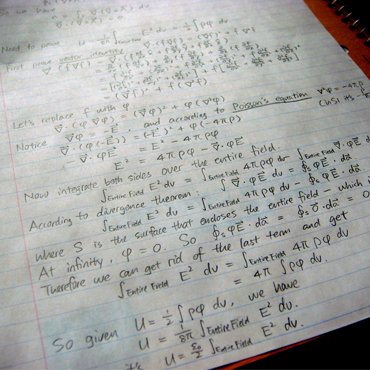 Need to prove U = ∫Entire Field E² dv = ½ ∫ρφ dv
First prove vector identity:
Let's replace f with φ
∇·(φ ∇φ) = (∇φ)² + φ(∇²φ)
Notice ∇φ = -E, and according to Poisson's equation ∇²φ = -4πρ
∇·(φ(-E)) = (-E)² + φ(-4πρ)
-∇·φE = E² - 4πρφ
E² = 4πρφ - ∇·φE
Now integrate both sides over the entire field.
∫Entire Field E² dv = ∫Entire Field 4πρφ dv - ∫Entire Field ∇·φE dv
According to divergence theorem: ∫ ∇·φE dv = ∮s φE·da
∫Entire Field E² dv = ∫Entire Field 4πρφ dv - ∮s φE·da
where S is the surface that encloses the entire field - which is
At infinity, φ = 0. So ∮s φE·da = ∮s 0·da = 0
Therefore we can get rid of the last term and get
∫Entire Field E² dv = ∫Entire Field 4πρφ dv
= 4π ∫ρφ dv.
So given U = ½ ∫ρφ dv, we have
U = 1/8π ∫Entire Field E² dv.
U = ε₀/2 ∫Entire Field E² dv.